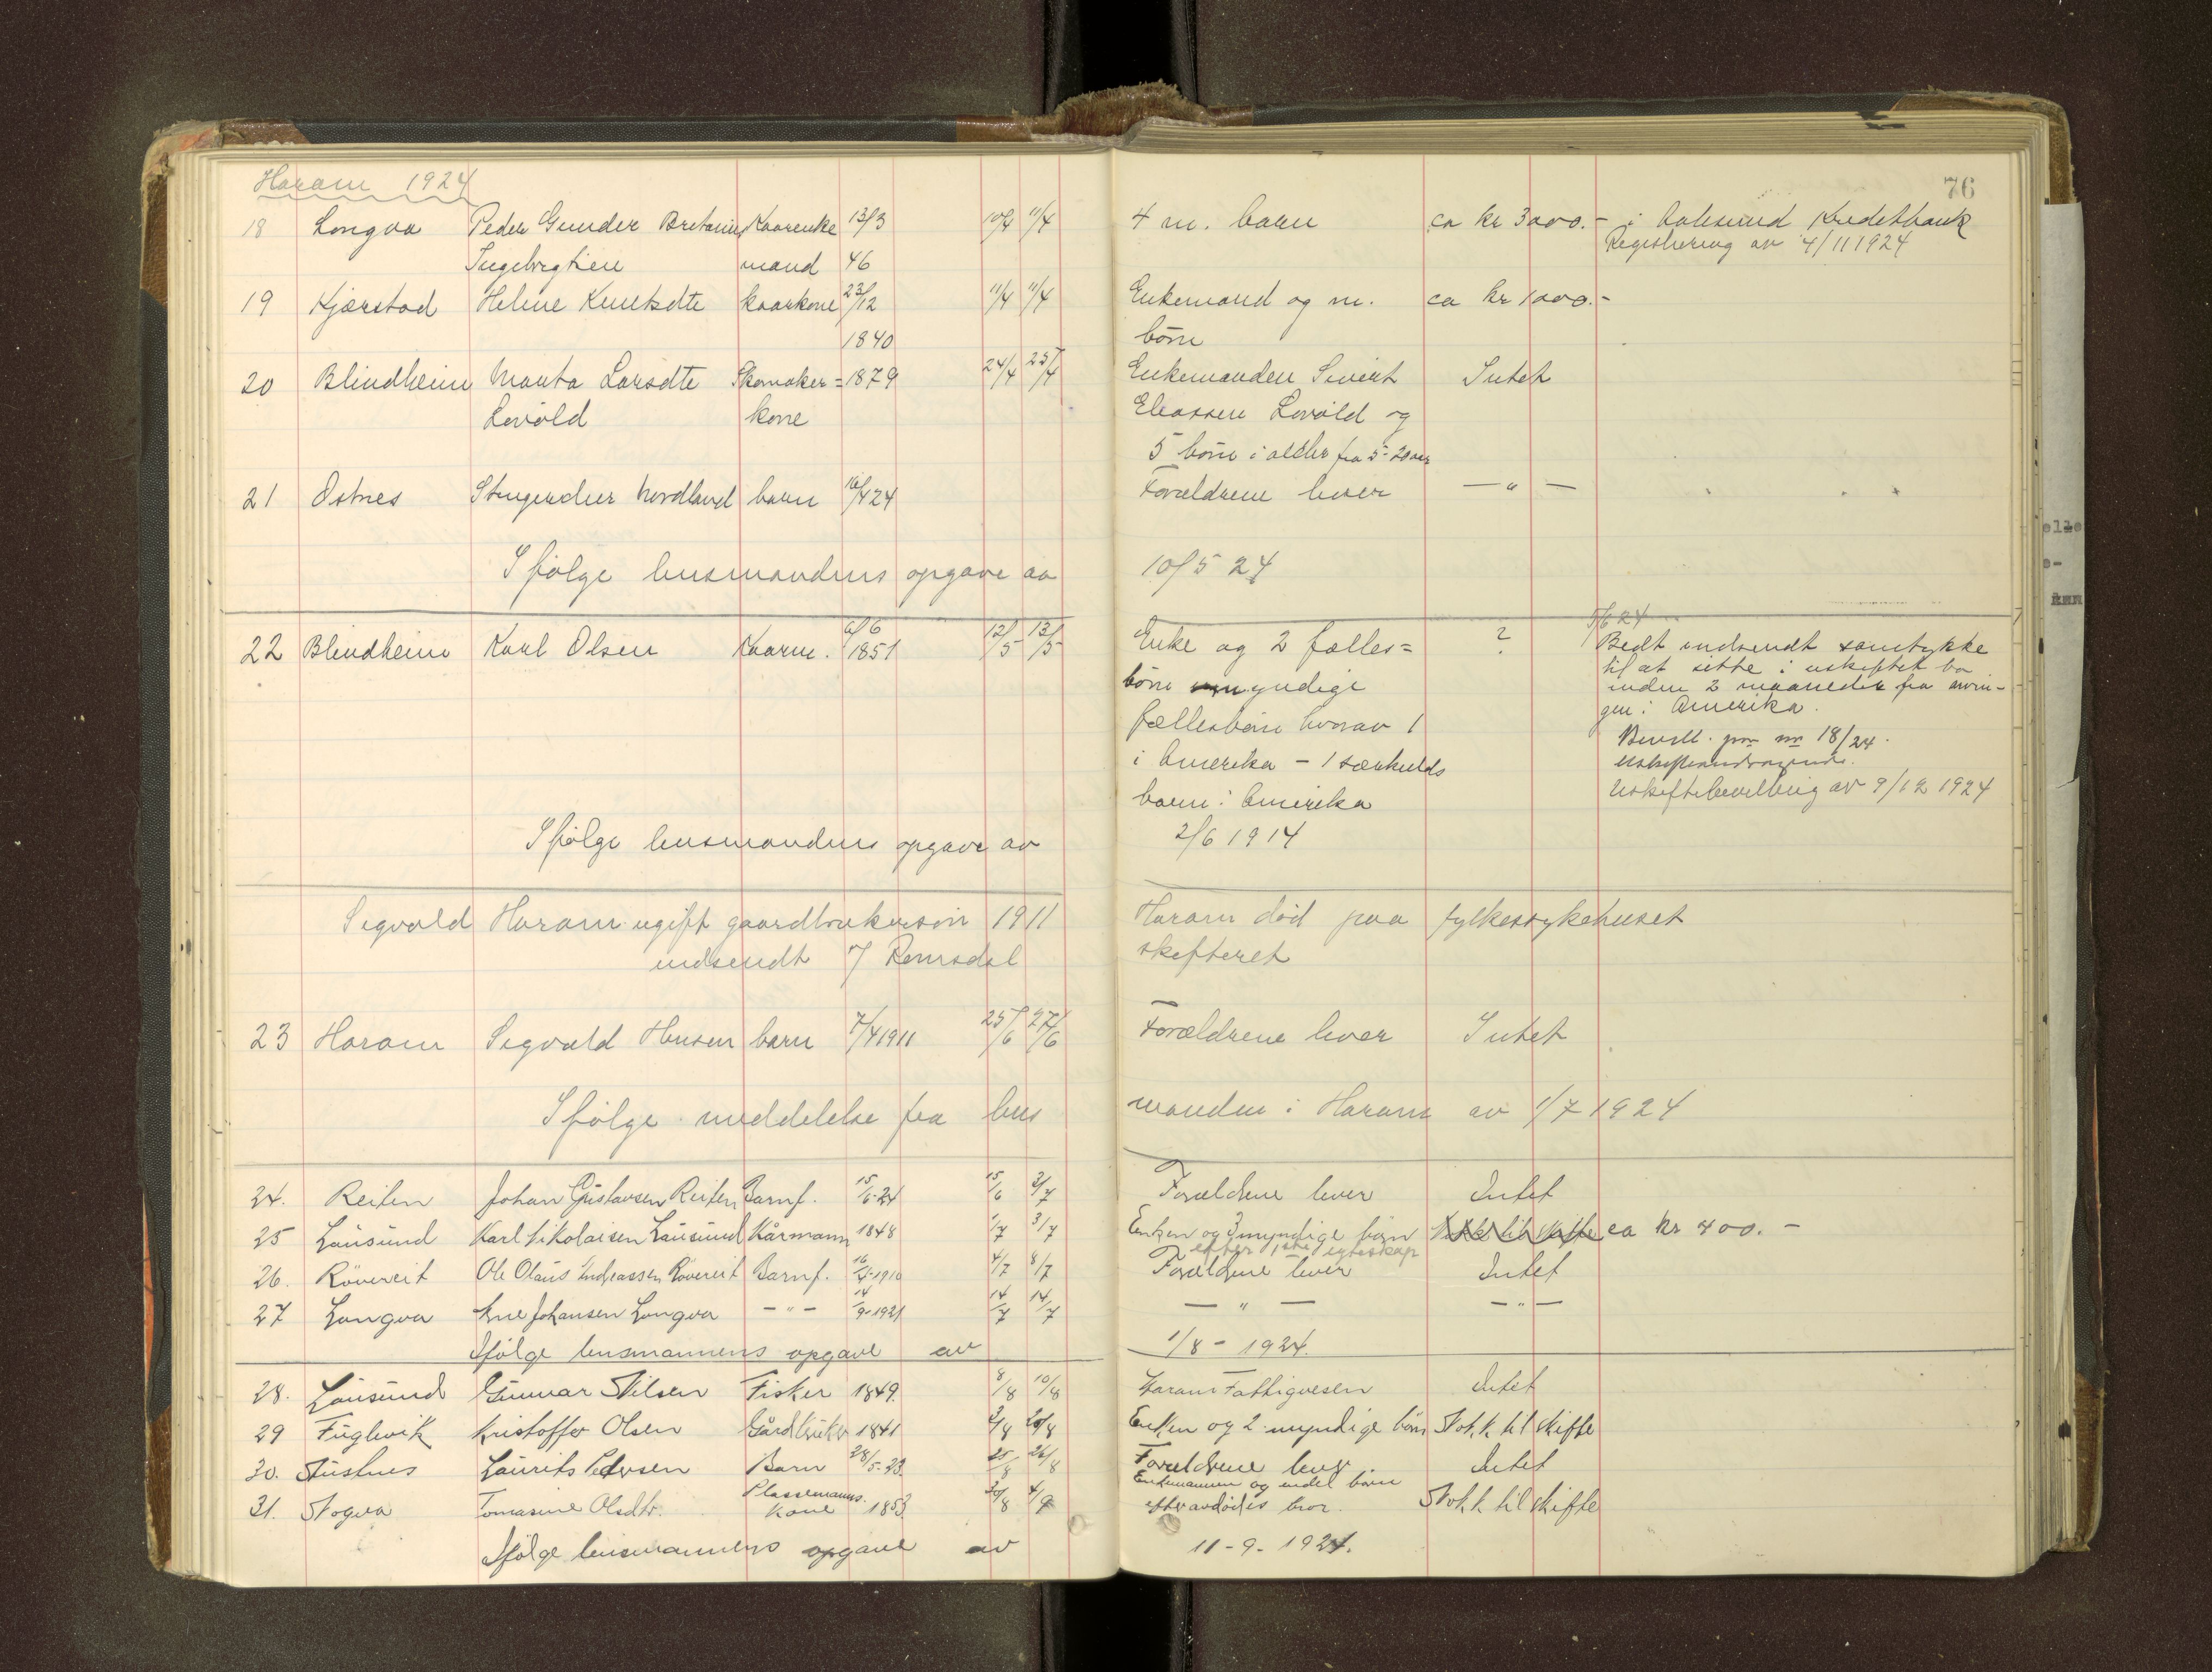 76
Haram 1924
18 Longva Peder Gunder Kaarenke 13/3 10/4 11/4 4 m. barn ca kr 3000.- i Aalesund Kreditbank
Registrering av 4/11 1924
mand 46
19 Kjærstad Helene Knutsdtr kaarkone 23/12 11/4 11/4 Enkemand og m. ca kr 1000.-
1840 børn
20 Blindheim Marta Larsdtr Skomaker= 1879 24/4 25/4 Enkemanden Sivert Intet
Løvold kone Eliassen Løvold og
5 børn i alder fra 5-20 aar
21 Østnes Nordland barn 16/4 24 Forældrene lever — " —
Ifølge lensmandens opgave av 10/5 24
22 Blindheim Karl Olsen Kaarm. 6/6 1851 12/5 13/5 Enke og 2 fælles= ? 5/6 24
Bedt indsendt samtykke
børn myndige til at sitte i uskiftet bo
inden 2 maaneder fra arvin-
fællesbørn hvorav 1 gen i Amerika.
i Amerika - 1 særkulds Bevill. 18/24.
barn i Amerika Uskiftebevilling av 9/12 1924
Ifølge lensmandens opgave av 2/6 1914
Sigvald Haram ugift gaardbrukersøn 1911 Haram død paa fylkessykehuset
indsendt Romsdal skifteret
23 Haram Sigvald Hansen barn 7/4 1911 25/6 27/6 Forældrene lever Intet
Ifølge meddelelse fra lens manden i Haram av 1/7 1924
24. Reiten Johan Gustavsen Reiten Barnf. 15/6-24 15/6 3/7 Forældrene lever Intet
25 Lausund Karl Nikolaisen Lausund Kårmann 1848 1/7 3/7 Enken og 3 myndige børn ca kr 400.-
efter 1ste egteskap
26. Røvereit Ole Olaus Andreassen Røvereit Barnf. 16/4-1910 4/7 8/7 Forældrene lever Intet
27 Longva Arne Johansen Longva — " — 14/9-1921 14/7 14/7 — " — — " —
Ifølge lensmannens opgave av 1/8 - 1924.
28. Lausund Gunnar Nilsen Fisker 1849. 8/8 10/8 Haram Fattigvesen Intet
29 Fuglevik Kristoffer Olsen Gårdbruker 1841 2/8 20/8 Enken og 2 myndige børn Nokk til skifte
30. Laurits Pedersen Barn 28/5-23. 25/8 26/8 Forældrene lever. Intet
31. Tomasine Olsdtr. Plassemanns. kone 1853 30/8 4/9 Enkemannen og endel barn
efter avdødes bror. Nokk til skifte
Ifølge lensmannens opgave av 11-9-1924.